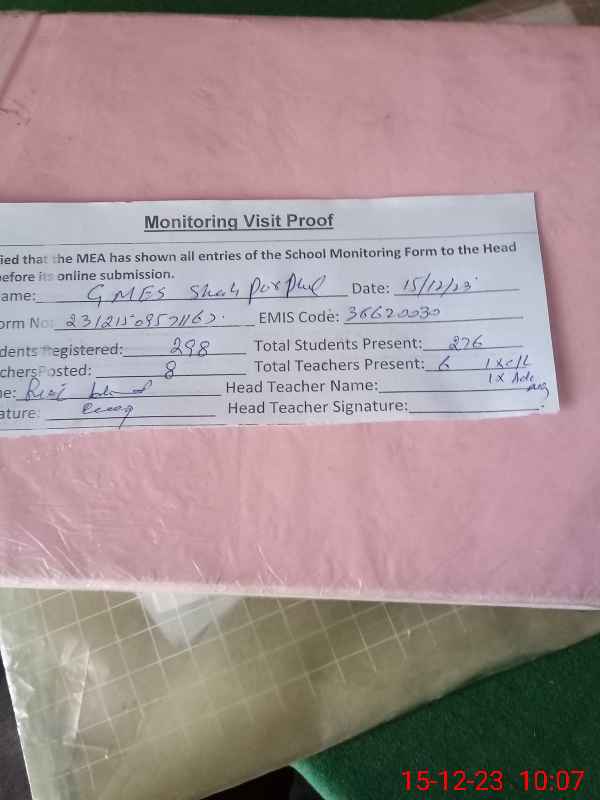 Monitoring Visit Proof
ied that the MEA has shown all entries of the School Monitoring Form to the Head
efore its online submission.
ame: GMES Date: 15/12/23
orm No: EMIS Code: 36620030
dents Registered: 298 Total Students Present: 276
chersPosted: 8 Total Teachers Present: 6 1 x c/L
e: Head Teacher Name: 1 x
ature: Head Teacher Signature:
15-12-23 10:07